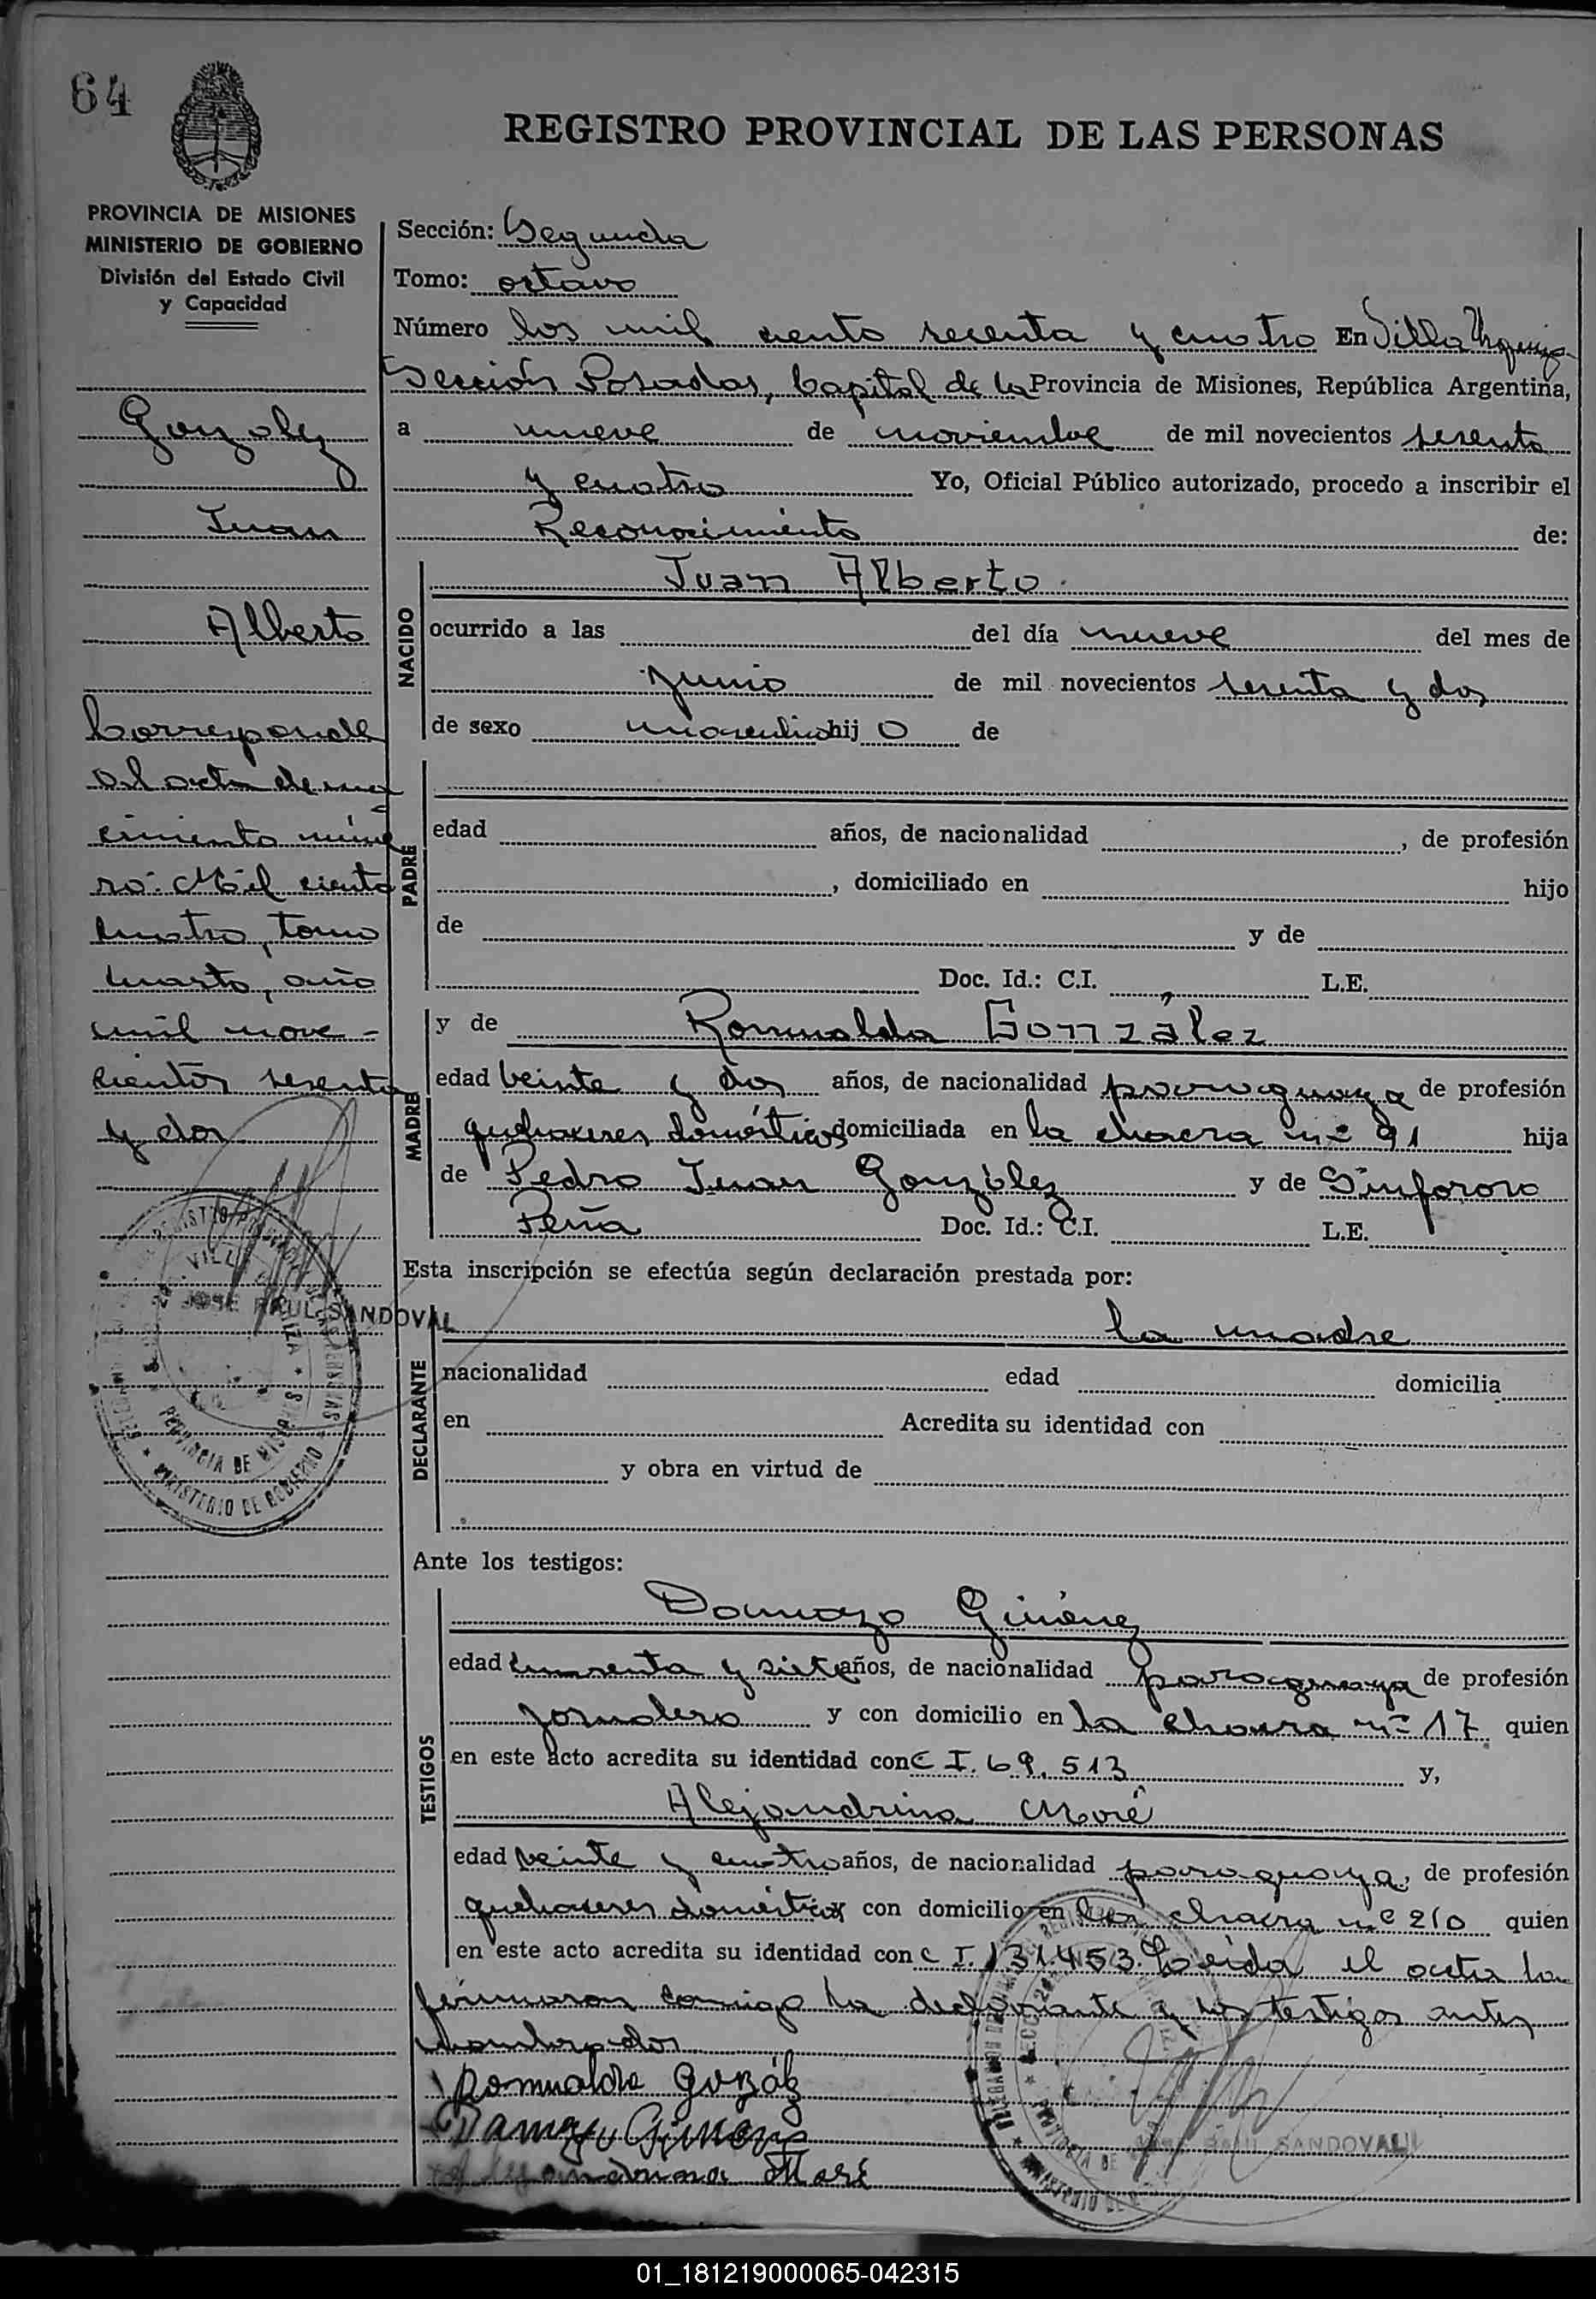 64
REGISTRO PROVINCIAL DE LAS PERSONAS
PROVINCIA DE MISIONES
MINISTERIO DE GOBIERNO
División del Estado Civil
y Capacidad
Gonzalez
Juan
Alberto
Corresponde
al acta de na
cimiento núme
ro: Mil ciento
cuatro, tomo
cuarto, año
mil nove-
cientos sesenta
y dos
JOSE RAUL SANDOVAL
PROVINCIA DE MISIONES
MINISTERIO DE GOBIERNO
Sección: Segunda
Tomo: octavo
Número dos mil ciento sesenta y cuatro En Villa Urquiza
Sección Posadas, Capital de la Provincia de Misiones, República Argentina,
a nueve de noviembre de mil novecientos sesenta
y cuatro Yo, Oficial Público autorizado, procedo a inscribir el
Reconocimiento de:
NACIDO
Juan Alberto
ocurrido a las del día nueve del mes de
junio de mil novecientos sesenta y dos
de sexo masculino hij o de
PADRE
edad años, de nacionalidad , de profesión
, domiciliado en hijo
de y de
Doc. Id.: C.I. L.E.
MADRE
y de Romualda González
edad veinte y dos años, de nacionalidad paraguaya de profesión
quehaceres domésticos domiciliada en la chacra nº 91 hija
de Pedro Juan González y de Sinforosa
Peña Doc. Id.: C.I. L.E.
Esta inscripción se efectúa según declaración prestada por:
DECLARANTE
la madre
nacionalidad edad domicilia
en Acredita su identidad con
y obra en virtud de
Ante los testigos:
TESTIGOS
Damazo Giménez
edad cuarenta y siete años, de nacionalidad paraguaya de profesión
jornalero y con domicilio en la chacra nº 17 quien
en este acto acredita su identidad con C I. 69.513 y,
Alejandrina Moré
edad veinte y cuatro años, de nacionalidad paraguaya, de profesión
quehaceres domésticos con domicilio en la chacra nº 210 quien
en este acto acredita su identidad con C I. 131.453. Leída el acta la
firmaron conmigo la declarante y los testigos antes
nombrados
Romualda
Damazo Gimenez
Alejandrina Moré
RAUL SANDOVAL
01_181219000065-042315